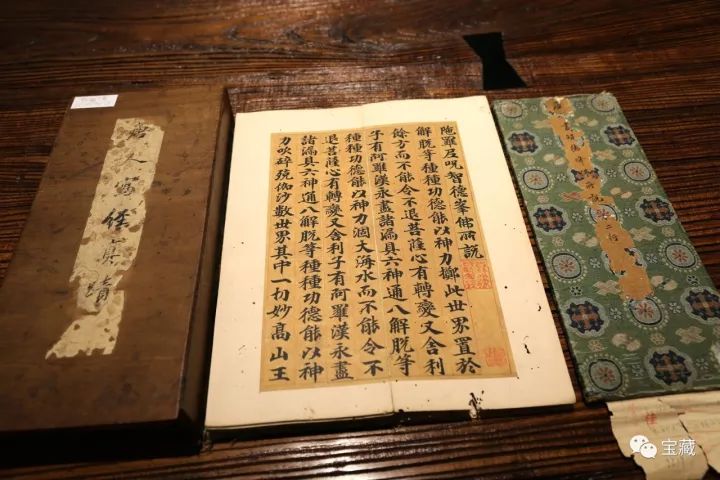 陁羅尼呪智德峯佛所說
解脫等種種功德能以神力擲此世界置於
餘方而不能令不退菩薩心有轉變又舍利
子有阿羅漢永盡諸漏具六神通八解脫等
種種功德能以神力涸大海水而不能令不
退菩薩心有轉變又舍利子有阿羅漢永盡
諸漏具六神通八解脫等種種功德能以神
力吹碎殑伽沙數世界其中一切妙高山王
唐人寫經真蹟
宝藏